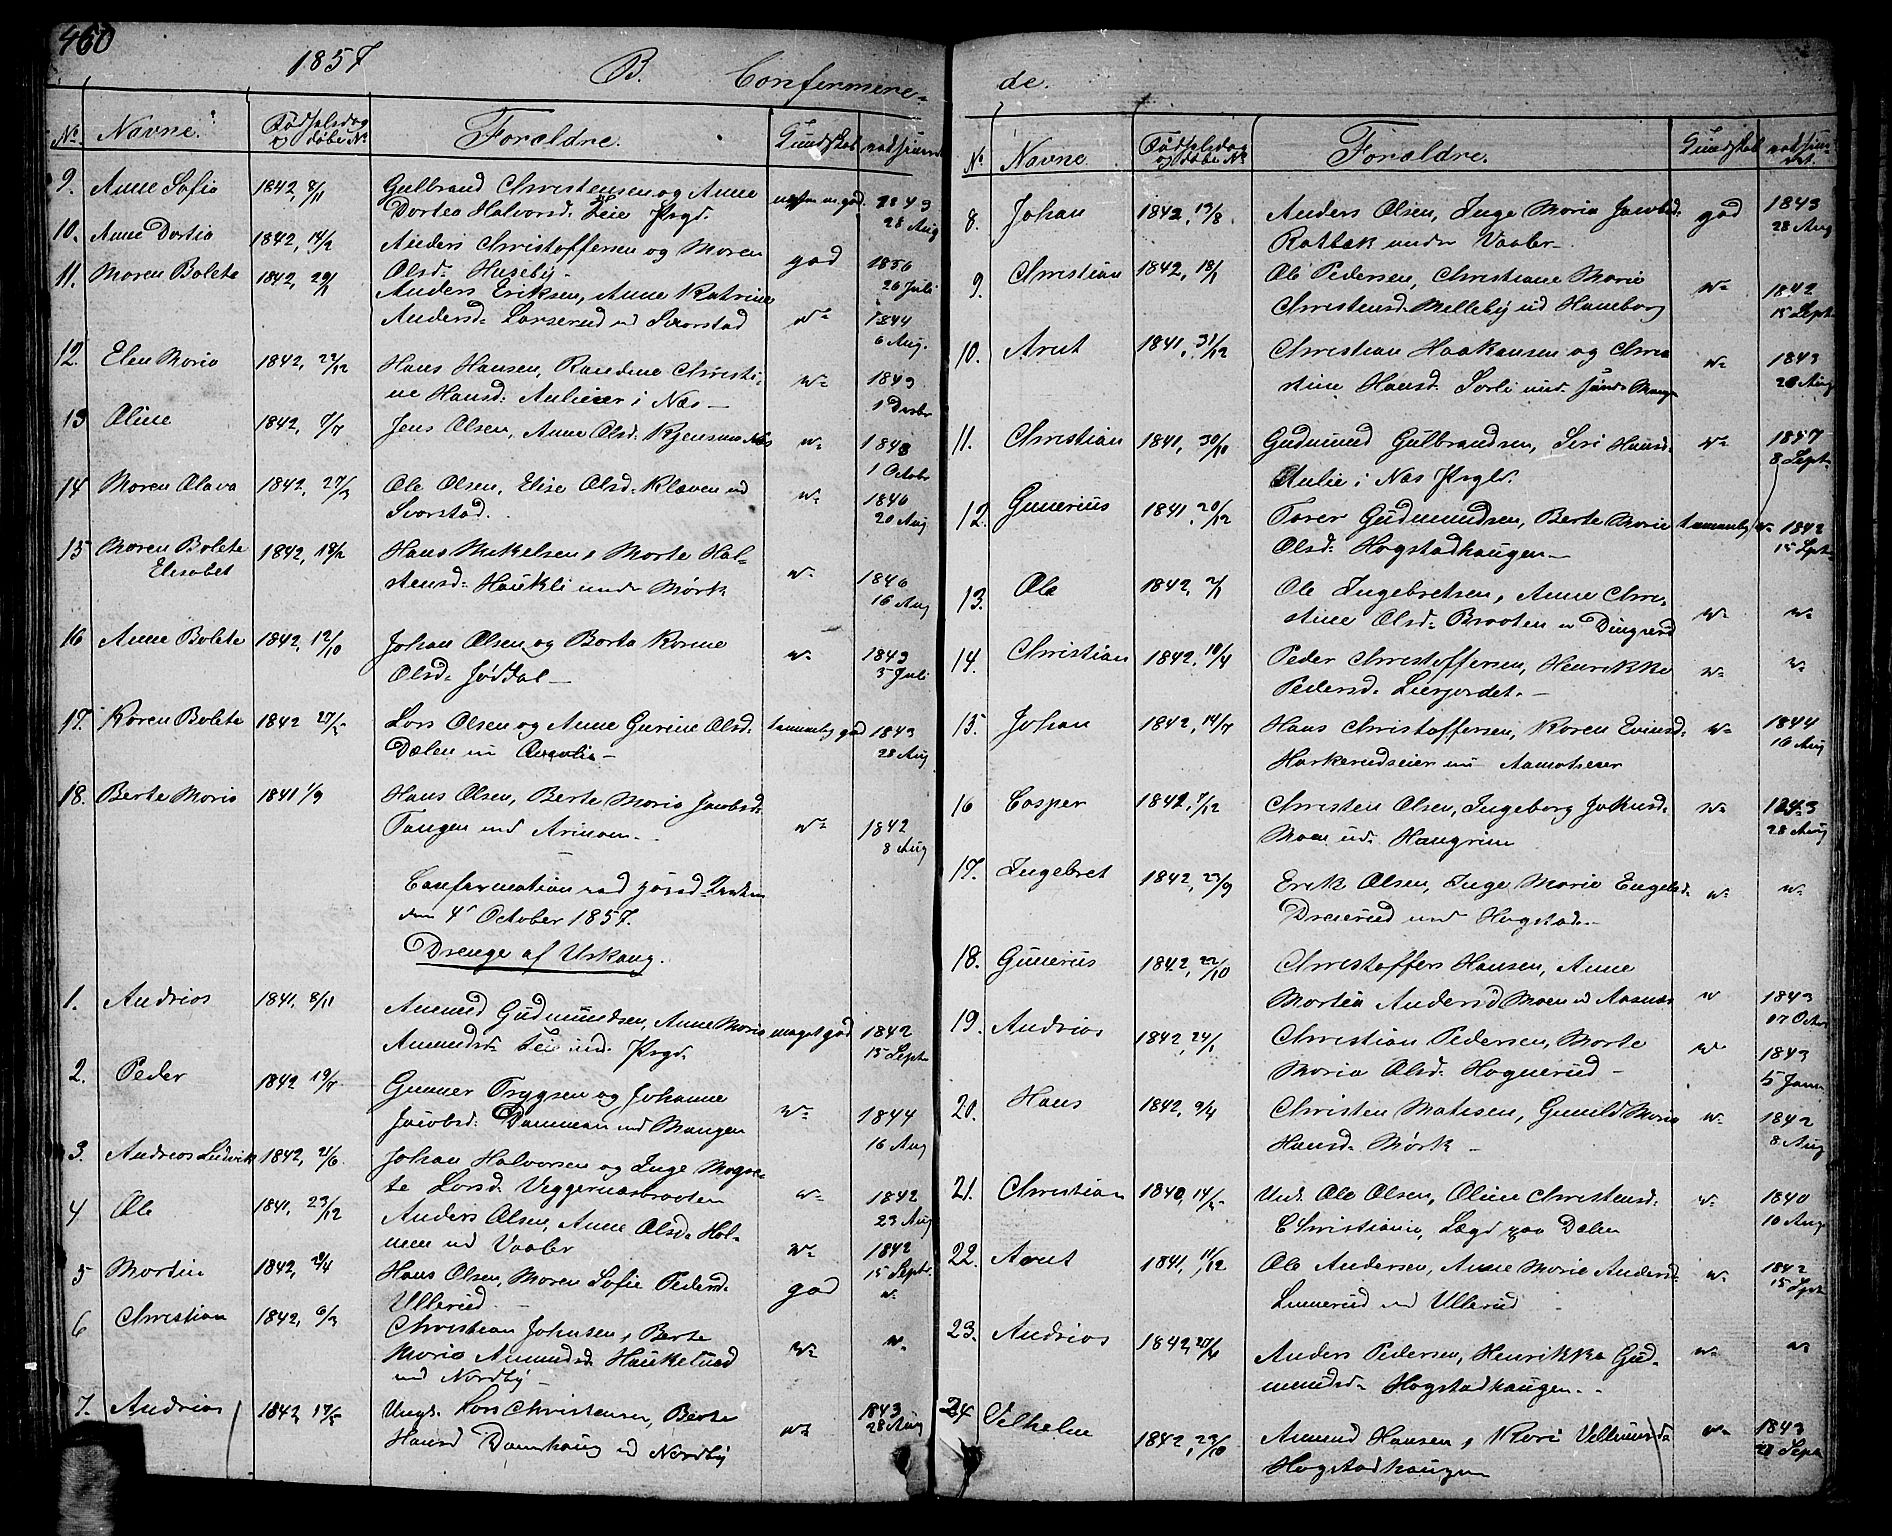 460
1857
B. Confirmere-
No. Navne. Fødselsdag og døbe No Forældre. Kundskab
9. Anne Sofia 1842, 8/11 Gulbrand Christensen og Anne
Dortea Halvorsd. Lie Prgd. 1843
28 Aug
10. Anne Dortia 1842, 14/2 Anders Christoffersen og Maren
Olsd. Huseby - god 1856
26 Juli
11. Maren Bolete 1842, 29/1 Anders Eriksen, Anne Katrine
Andersd. Larserud Svorstad 1844
6 Aug.
12. Elen Maria 1842, 22/12 Hans Hansen, Randine Christi-
ne Hansd. Aulieier i Næs - 1843
13 Oline 1842, 7/7 Jens Olsen, Anne Olsd. 1843
1 Octobr
14 Maren Olava 1842, 27/3 Ole Olsen, Elise Olsd. Klaven ud
Svorstad. 1840
20 Aug
15 Maren Bolete
Elisabet 1842, 18/2 Hans Mikelsen, Marte Hal-
stensd. Haukli under Mørk 1846
16 Aug
16 Anne Bolete 1842, 12/10 Johan Olsen og Berta Karine
Olsd. Jøddal - 1843
5 Juli
17. Karen Bolete 1842 27/5 Lars Olsen og Anne Gurine Olsd.
Dælen temmelig god 1843
28 Aug
18. Berte Maria 1841 1/9 Hans Olsen, Berte Maria Jacobsd.
Tangen und 1842
8 Aug
Confirmation ved
den 4de October 1857.
Drenge af Urskoug.
1. Andrias 1841, 8/11 Amund Gudmundsen, Anne Maria
Amundsd. Lie und. Prgd. meget god 1842
15 Septr
2. Peder 1842 19/7 Gunner Trygsen og Johanne
Jacobsd. Dammen und Mangen 1844
16 Aug
3. Andrias Ludvik 1842, 21/6 Johan Halvorsen og Inge Magre-
te Larsd. Veggernæsbraaten 1842
23 Aug
4 Ole 1841, 23/12 Anders Olsen, Anne Olsd. Hol-
men ud Vaaler 1842
15 Septr.
5 Martin 1842, 2/4 Hans Olsen, Maren Sofie Pedersd.
Ullerud god
6 Christian 1842, 6/3 Christian Johnsen, Berte
Maria Amundsd. Haukelund
und Nordby -
7. Andrias 1842, 17/5 Ungk. Lars Christensen, Berte
Hansd Damhaug ud Nordby 1843
28 Aug
de.
No. Navne Fødselsdag og døbe No Forældre. Kundskab
8. Johan 1842, 13/8. Anders Olsen, Inge Maria Jacobsd.
Ratbæk under Vaaler - god 1843
28 Aug
9. Christian 1842, 18/1 Ole Pedersen, Christiane Marie
Christensd. Melleby ud Haneborg 1842
15 Septr
10. Arnt 1841, 31/12 Christian Haakansen og Chri
stine Hansd. Sorli und. 1843
28 Aug
11. Christian 1841, 30/10 Gudmund Gulbrandsen, Siri Hansd.
Aulie i Næs Prgld. 1857
8 Septr
12. Gunerius 1841, 20/12 Torer Gudmundsen, Berte Marie
Olsd. Hogstadhaugen - temmelig 1842
15 Septr
13. Ole 1842, 2/1 Ole Ingebretsen, Anne Chri-
stine Olsd. Braaten
14. Christian 1842, 10/4 Peder Christoffersen, Henrikke
Pedersd. Lierjordet. -
15. Johan 1842, 14/7 Hans Christoffersen, Karen Evensd.
Harkerudseier 1844
16 Aug
16 Casper 1842, 7/12 Christen Olsen, Ingeborg Johnsd.
Moen ud. Hangrim 1843
28 Aug
17. Ingebret 1842, 23/9 Erik Olsen, Inge Marie Engebd.
Dreierud und Hogstad -
18. Gunerius 1842, 22/10 Christoffers Hansen, Anne
Martea Andersd Moen 1843
19. Andrias 1842, 24/1 Christian Pedersen, Marte
Maria Olsd. Hognerud - 1843
20. Hans 1842, 9/4 Christen Matisen, Gunild Maria
Hansd. Mørk - 1842
8 Aug
21. Christian 1840, 14/5 Unk. Ole Olsen, Oline Christensd.
Christiania, Lægd paa Dælen 1840
10 Aug
22. Arnt 1841, 11/12 Ole Andersen, Anne Marie Andersd.
Linnerud ud Ullerud 1842
15 Sptr
23. Andrias 1842, 27/6 Anders Pedersen, Henrikka Gud-
mundsd. Hogstadhaugen. -
24 Velhelm 1842, 23/10 Amund Hansen, Kari
Hogstadhaugen 1843